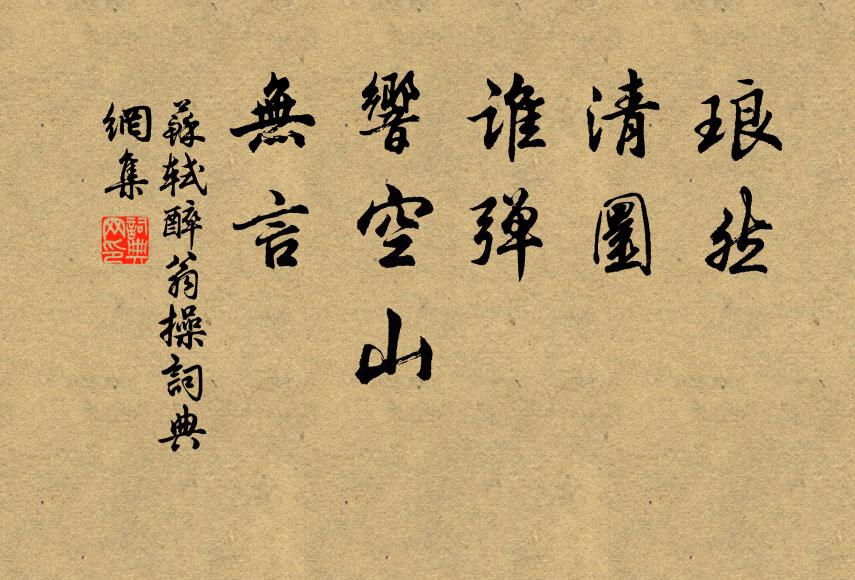 琅然
清圜
谁弹
響空山
無言
蘇轼醉翁操詞典
網集
詞典
网印